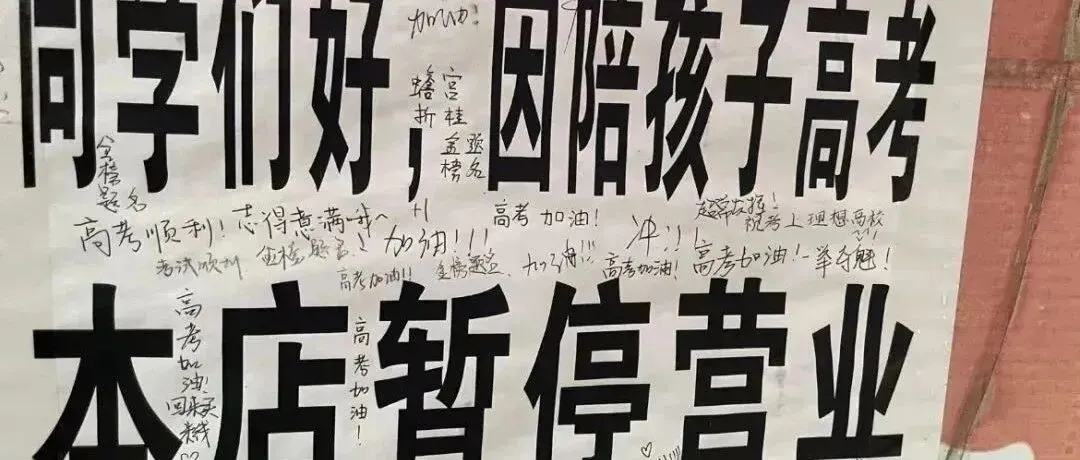 加油！
同学们好，因陪孩子高考
蟾宫
折桂
金题
榜名
金榜题名
高考顺利！志得意满哦~
+1
高考加油！
超常发挥！
祝考上理想高校
考试顺利
金榜题名！
加油！！！
冲！！！
高考加油！！
金榜题名
加油！！！
高考加油！
高考加油！一举夺魁！
本店暂停营业
高考加油！
回来买
高考加油！